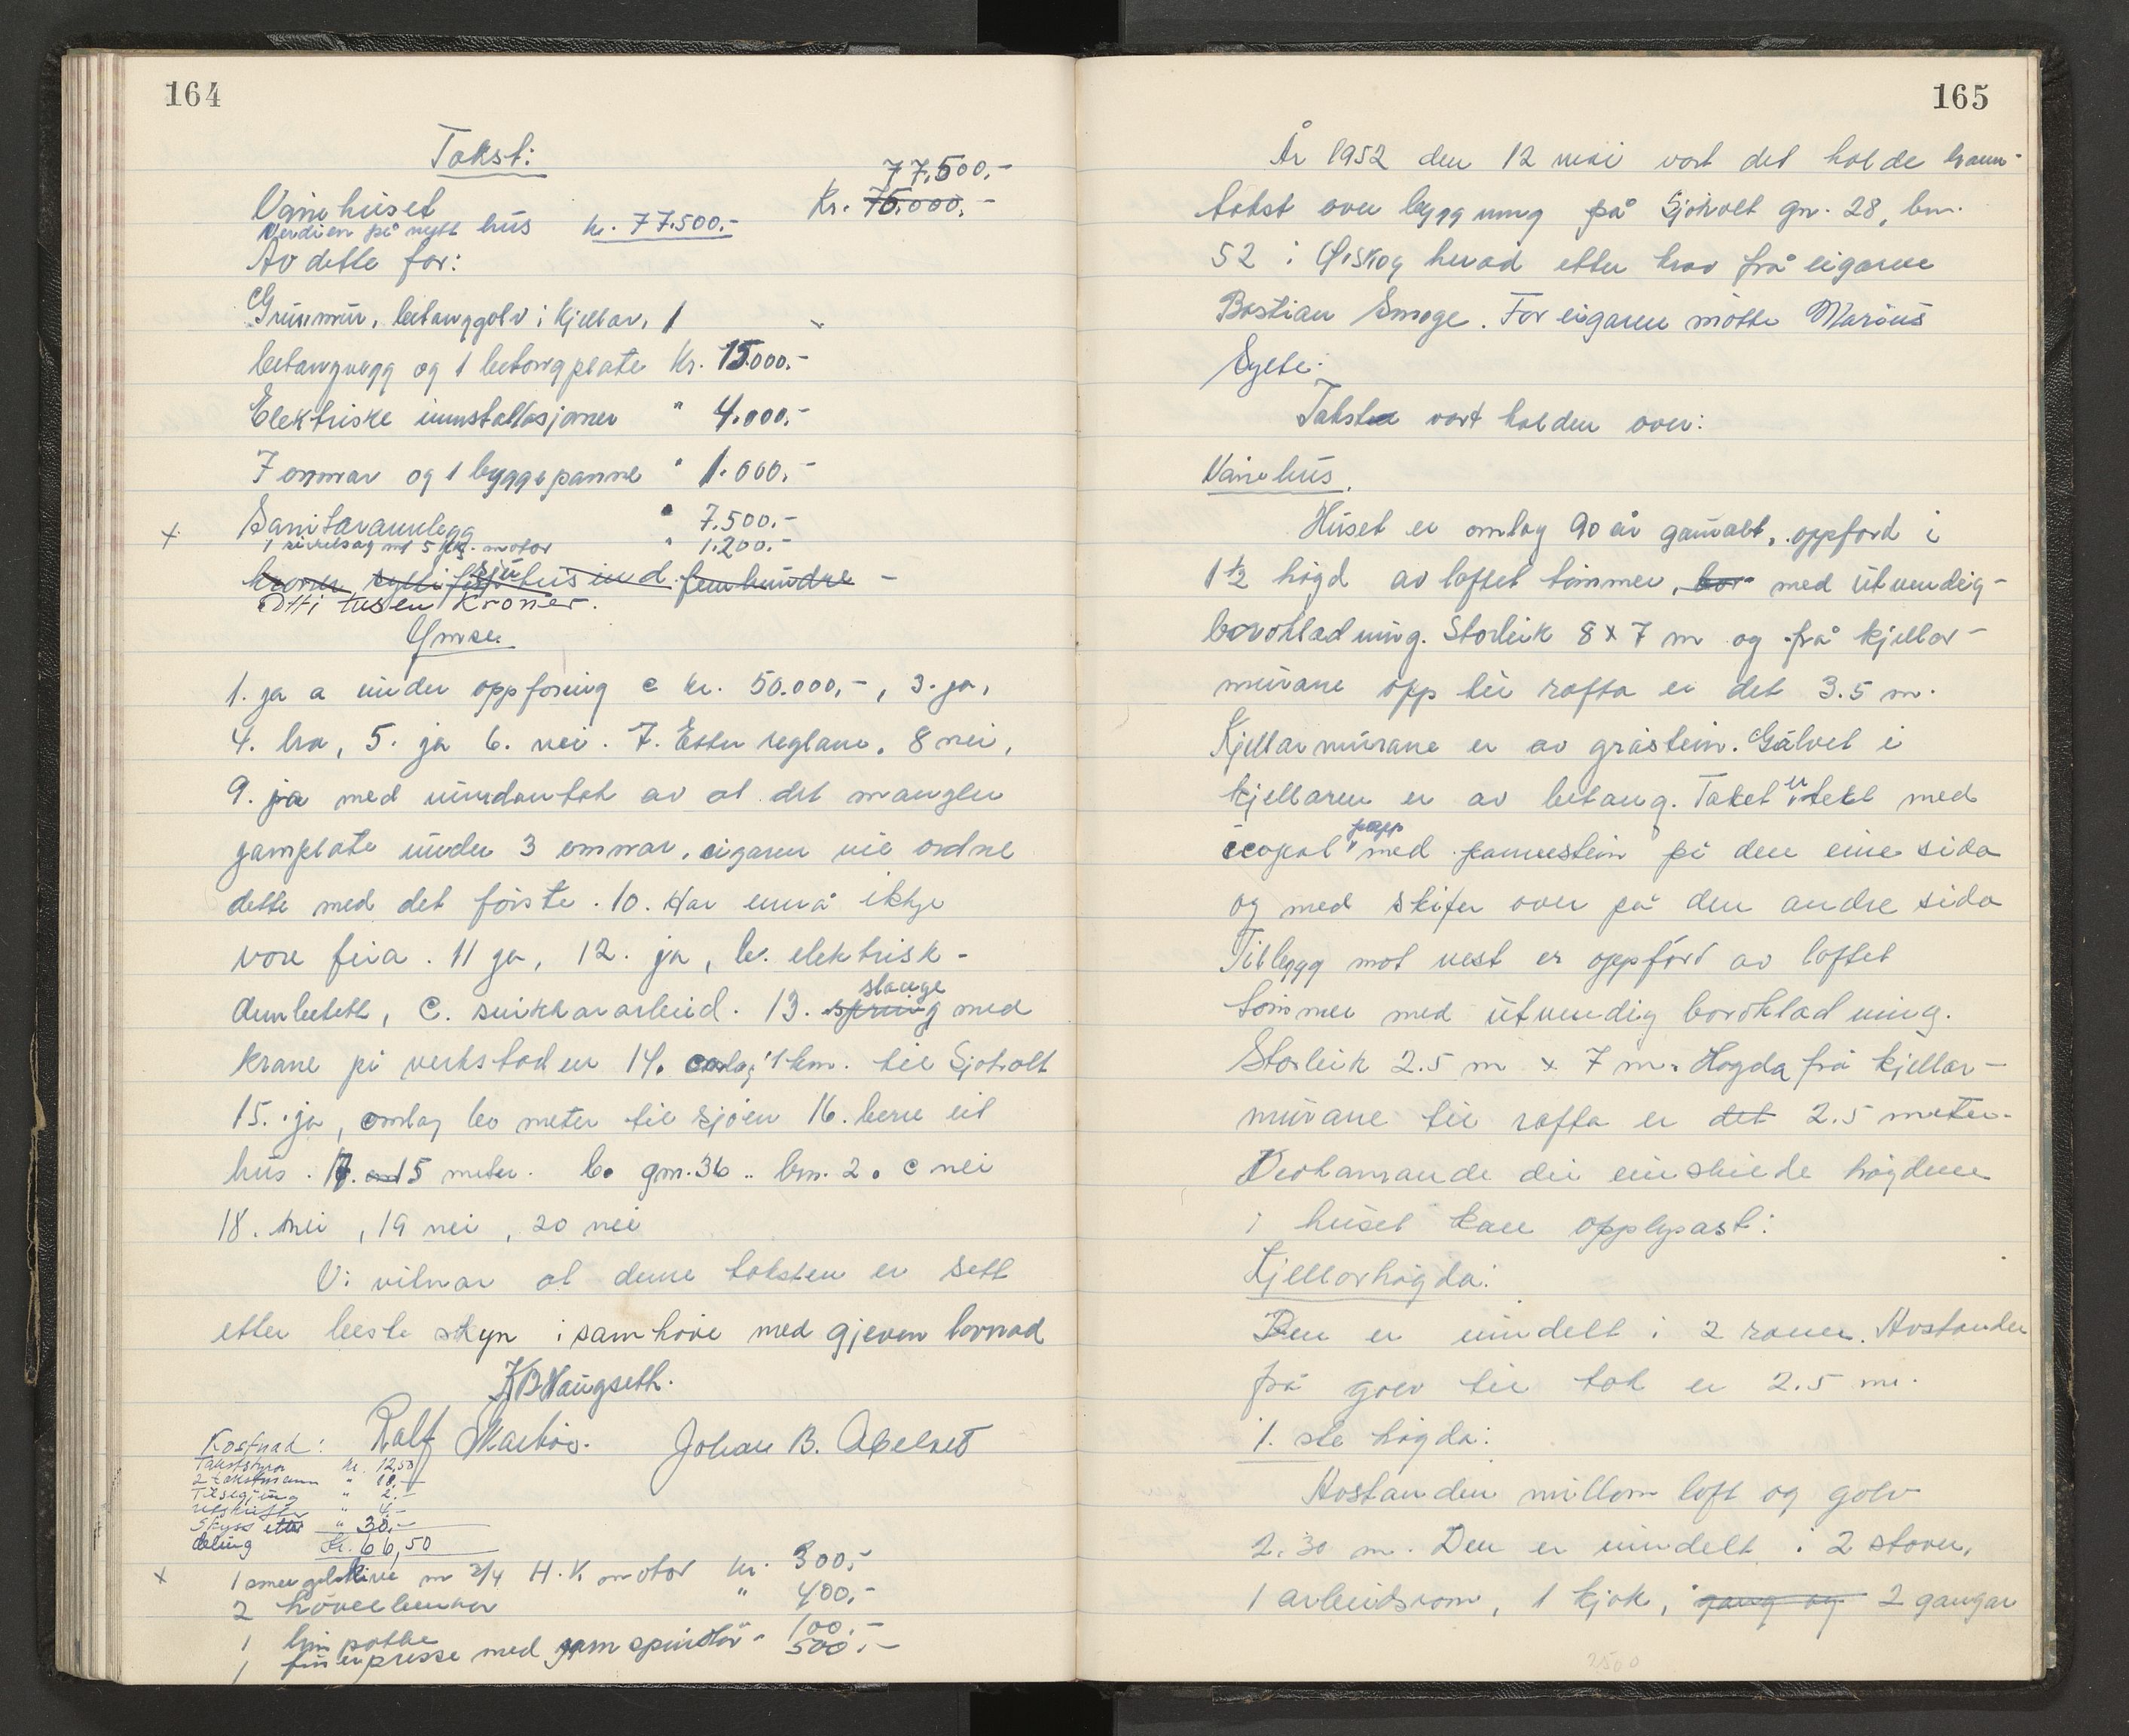 164
Takst:
77,500.-
Våne huset Kr. 75.000.-
Verdien på nytt hus kr. 77.500.-
Av dette for:
Grunnmur, betonggolv i kjellar, 1
betongvegg og 1 betongplate Kr. 15.000.-
Elektriske innstallasjoner " 4.000.-
7 omnar og 1 byggepanne " 1.000.-
x Sanitæranlegg " 7.500.-
1 sirkelsag m 5 motor " 1.200.-
kroner sytti sju tusind femhundre -
Otti tusen Kroner.
Ymse.
1. ja a under oppføring c kr. 50.000,-, 3. ja,
4. bra, 5. ja 6. nei. 7. Etter reglane, 8 nei,
9. ja med unndantak av at det mangler
jarnplate under 3 omnar, eigaren vil ordne
dette med det første. 10. Har ennå ikkje
vore feia. 11 ja, 12. ja, b. elektrisk-
slange
drumbetett, C. snikkararbeid. 13. spring med
krane på verkstaden 14. omlag 1 km. til Sjøholt
15. ja, omlag 60 meter til sjøen 16. berre eit
hus. 17. a 15 meter. b. gnr. 36 .. bnr. 2. c nei
18. nei, 19 nei, 20 nei
Vi vitnar at denne taksten er sett
etter beste skyn i samhøve med gjeven lovnad
K B Haugseth.
Ralf Skarbø. Johan B. Abelset
Kostnad:
Takststyrar kr. 12,50
2 takstmenn " 18,-
Tilsegjing " 2.-
utskrift " 4.-
Skyss etter " 30.-
deling Kr. 66,50
x 1 smergelskive m 3/4 H.K. motor kr. 300,-
2 høvelbenker " 400,-
1 limpotte " 100.-
1 finerpresse med jarnspindlar - 500.-
165
År 1952 den 12 mai vart det halde brann-
takst over byggning på Sjøholt gnr. 28, bnr.
52 i Ørskog herad etter krav frå eigaren
Bastian Smoge. For eigaren møtte Marius
Sylte.
Taksten vart halden over:
Vånehus.
Huset er omlag 90 år gamalt, oppførd i
1 1/2 høgd av laftet tømmer, bor med utvendig-
bordkladning. Storleik 8 x 7 m og frå kjellar-
murane opp til rafta er det 3.5 m.
Kjellarmurane er av gråstein. Gålvet i
kjellaren er av betong. Taket er tekt med
papp
icopal med pannestein på den eine sida
og med skifer over på den andre sida
Tilbygg mot vest er oppført av laftet
tømmer med utvendig bordkladning.
Storleik 2.5 m x 7 m. Høgda frå kjellar-
murane til rafta er det 2.5 meter.
Vedkamande dei einskilde høgdene
i huset kan opplysast:
Kjellarhøgda:
Den er inndelt i 2 romm. Avstanden
frå golv til tak er 2.5 m.
1. ste høgda:
Avstanden millom loft og golv
2.30 m. Den er inndelt i 2 stover,
1 arbeidsrom, 1 kjøk, gang og 2 gangar
2500